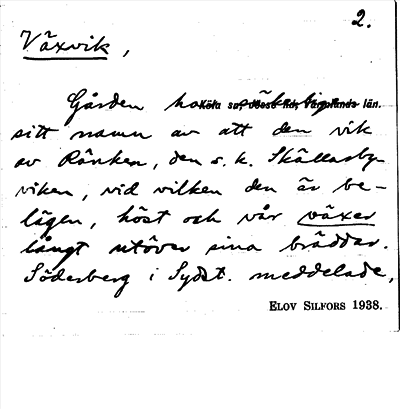 2.
Växvik,
Gården har
Köla sn, Jösse hd, Värmlands län.
sitt namn av att den vik
av Ränken, den s. k. Skällarby-
viken, vid vilken den är be-
lägen, höst och vår växer
långt utöver sina bräddar.
Söderberg i Sydst. meddelade,
ELOV SILFORS 1938.